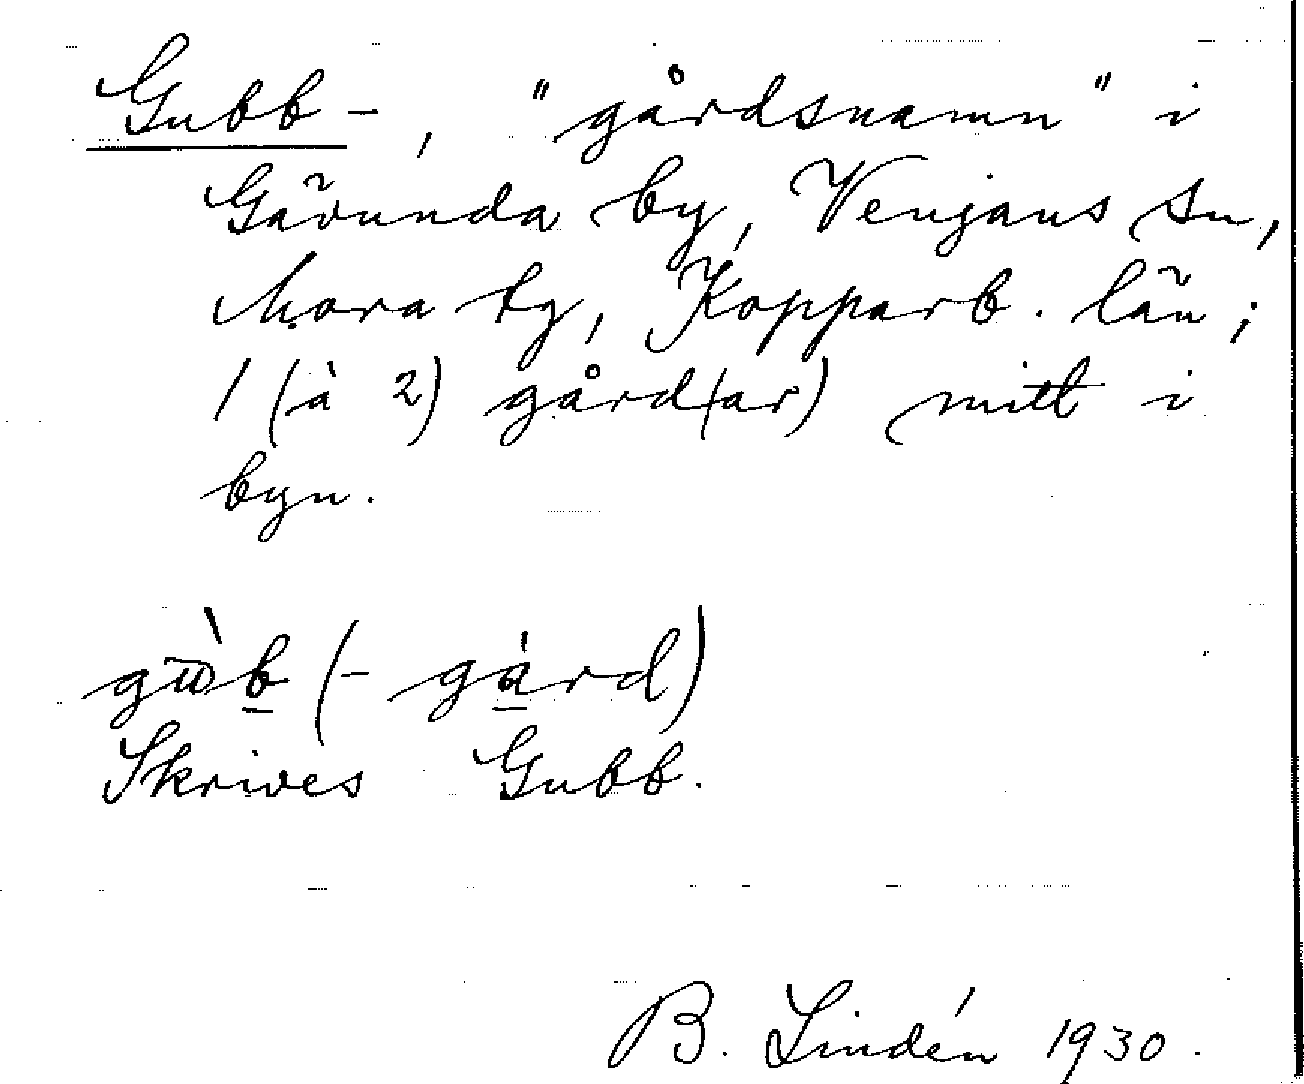 Gubb-, "gårdsnamn" i
Gävunda by, Venjans sn,
Mora tg, Kopparb. län;
1 (à 2) gård(ar) mitt i
byn.
(-gård)
Skrives Gubb.
B. Lindén 1930.